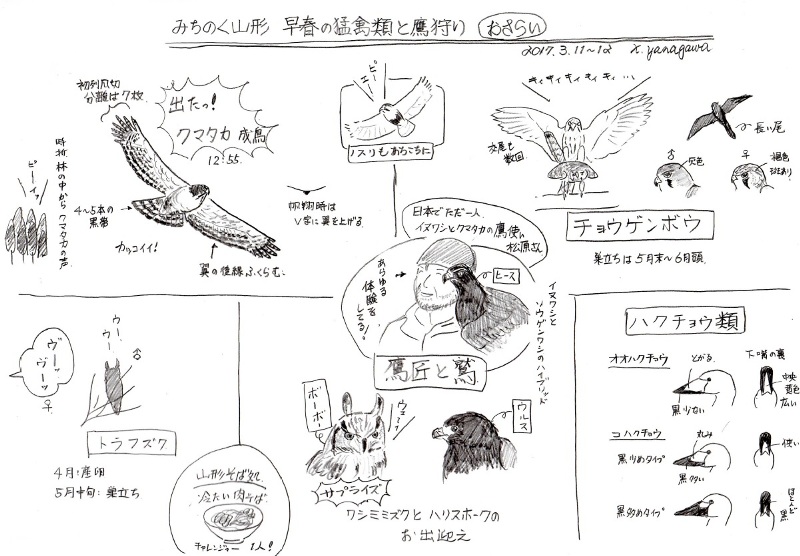 みちのく山形 早春の猛禽類と鷹狩り おさらい
2017.3.11~12 X.yanagawa
初列風切
分離は7枚
出たっ!
クマタカ 成鳥
12:55.
時折、林の中から クマタカの声
ピーィッ
4~5本の
黒帯
カッコイイ!
翼の後縁ふくらむ.
帆翔時は
V字に翼を上げる
ピーエー
ノスリもあちこちに.
キィキィキィキィキィ…
交尾も
数回
長い尾
♂
灰色
♀
褐色
斑あり
チョウゲンボウ
巣立ちは5月末~6月頭.
日本でただ一人
イヌワシとクマタカの鷹使い
松原さん
あらゆる
体験を
してる!
ヒース
イヌワシと
ソウゲンワシのハイブリッド
鷹匠と鷲
ボーボー
ウルス
サプライズ
ワシミミズクと ハリスホークの
お出迎え
ウーウー
♂
ヴーッ
ヴーッ
♀
トラフズク
4月:産卵
5月中旬:巣立ち
山形そば処
冷たい肉そば
チャレンジャー 1人!
ハクチョウ類
オオハクチョウ
とがる
黒少ない
下嘴の裏
中央
黄色
広い
コハクチョウ
丸み
黒少めタイプ
黒多い
狭い
黒多めタイプ
ほとんど
黒